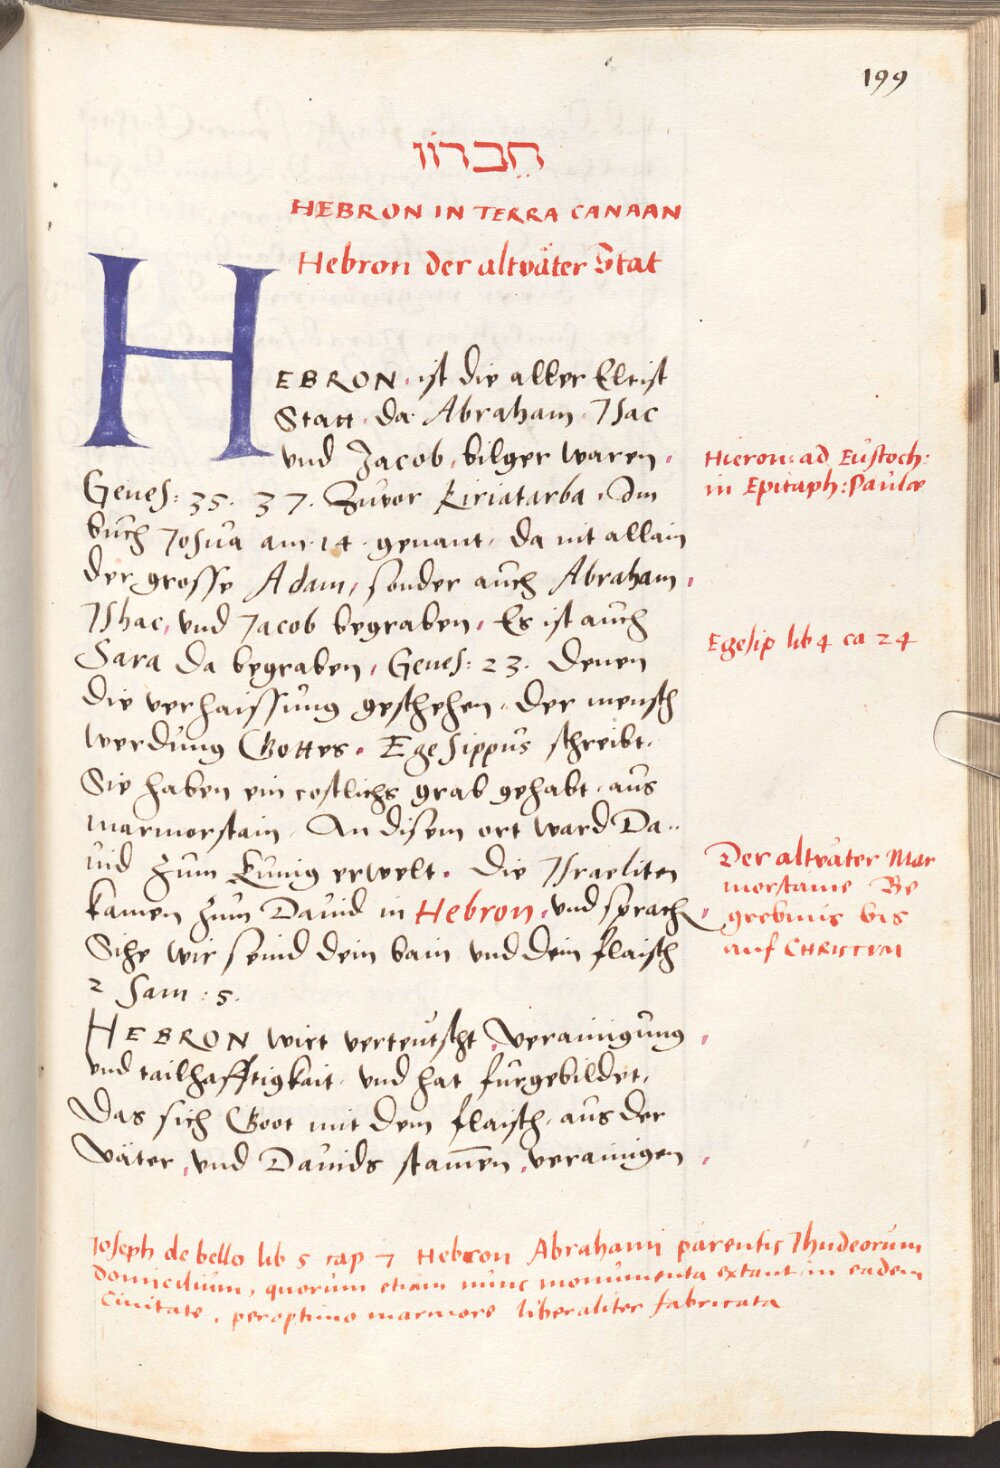 199
חֶבְרוֹן
HEBRON IN TERRA CANAAN
Hebron der altväter Stat
HEBRON ist die aller Eltist
Statt da Abraham Isac
vnd Jacob bilger waren
Genes: 35. 37. Zuvor Kiriatarba Im
buch Josua am 14 genant, da nit allain
der grosse Adam, sonder auch Abraham
Ishac, vnd Jacob begraben, Es ist auch
Sara da begraben, Genes: 23. denen
die verhaissung geschehen, der mensch
werdung Gottes. Egesippus schreibt,
Sie haben ein costlichs grab gehabt aus
marmorstain. An disem ort ward Da=
uid zum Kunig erwelt. Die Israeliten
kamen zum Dauid in Hebron, vnd sprach
Sihe wir seind dein bain vnd dein flaisch
2 Sam: 5.
HEBRON wirt verteutscht, Verainigung
vnd tailhafftigkait, vnd hat furgebildet,
Das sich Gott mit dem flaisch, aus der
Väter, vnd Dauids stam̄en verainigen
Hieron: ad Eustoch:
in Epitaph: Paulæ
Egesip lib 4 ca 24
Der altväter Mar
morstaine Be
grebnis bis
auf CHRISTVM
Joseph de bello lib 5 cap 7 Hebron Abrahami parentis Jhudeorum
Domicilium, quorum etiam nunc monumenta extant in eadem
Civitate, peroptimo marmore liberaliter fabricata